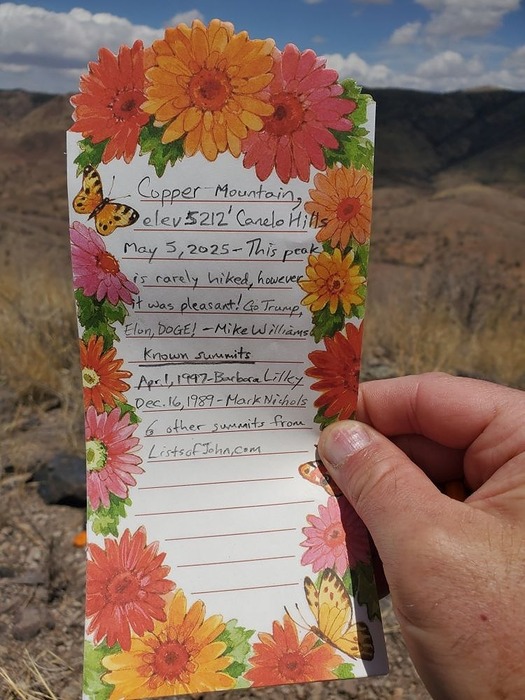 Copper Mountain,
elev 5212' Canelo Hills
May 5, 2025 - This peak
is rarely hiked, however
it was pleasant! Go Trump,
Elon, DOGE! - Mike Williams
Known summits
Apr. 1, 1997 - Barbara Lilley
Dec. 16, 1989 - Mark Nichols
6 other summits from
ListsofJohn.com